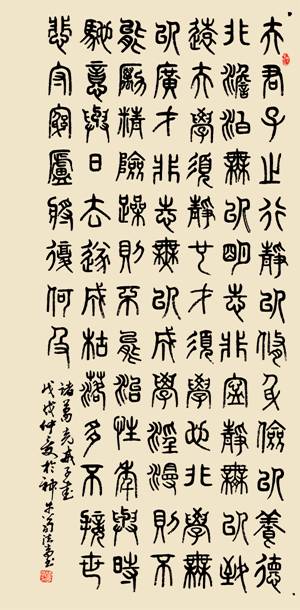 夫君子之行靜以修身儉以養德
非澹泊無以明志非寧靜無以致
遠夫學須靜也才須學也非學無
以廣才非志無以成學淫漫則不
能勵精險躁則不能治性年與時
馳意與日去遂成枯落多不接世
悲守窮廬將復何及
諸葛亮誡子書
戊戌仲夏於